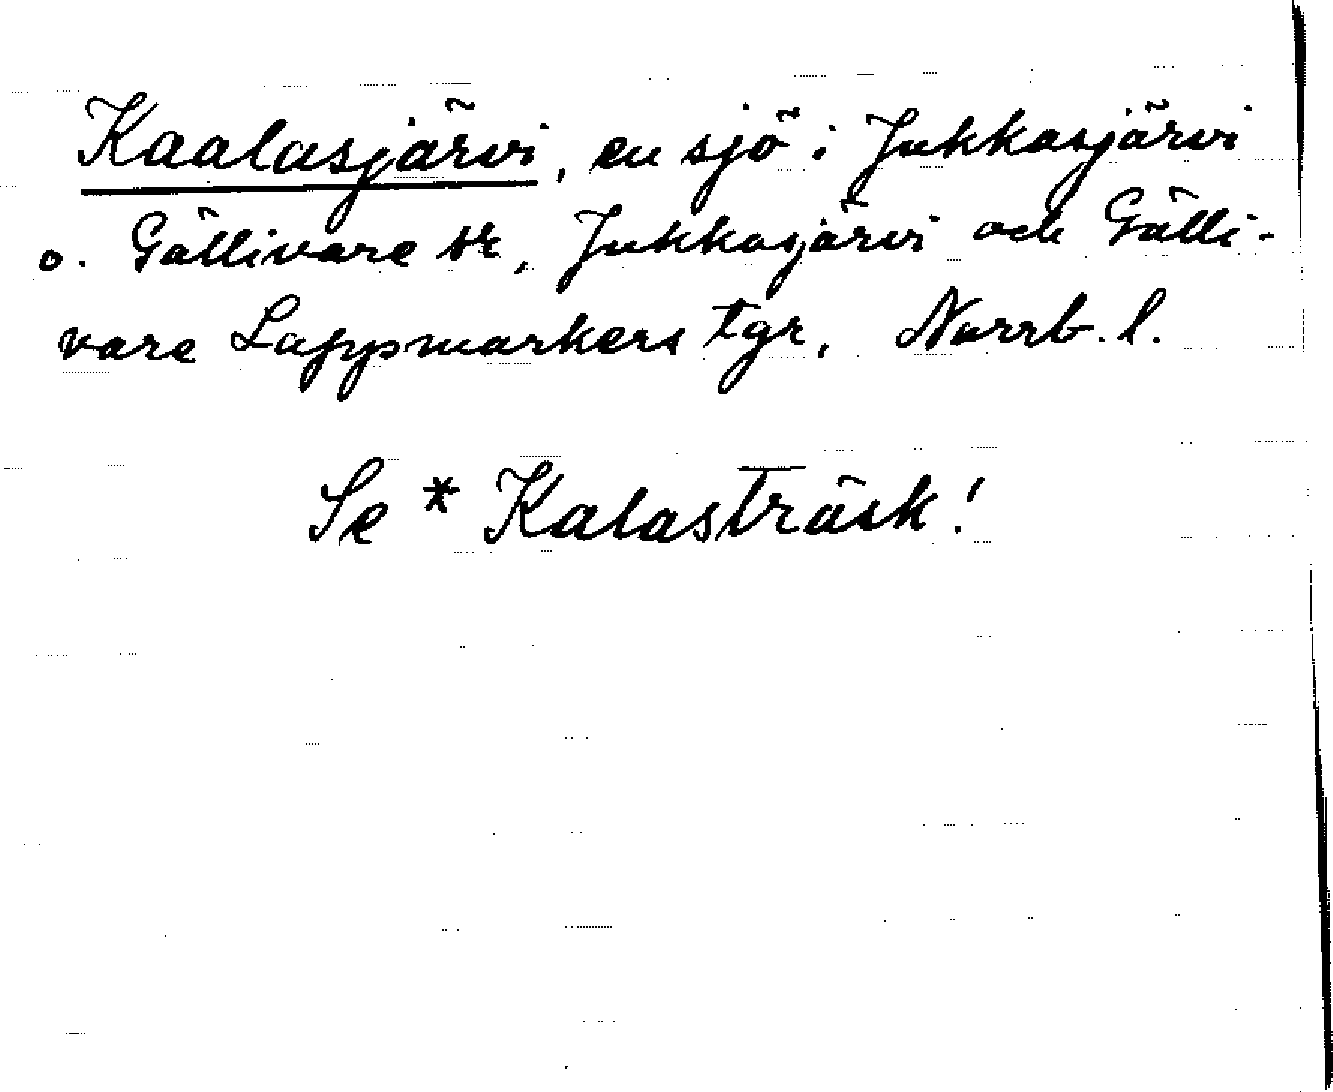 Kaalasjärvi, en sjö i Jukkasjärvi
o. Gällivare sr, Jukkasjärvi och Gälli-
vare Lappmarkers tgr, Norrb. l.
Se * Kalasträsk!